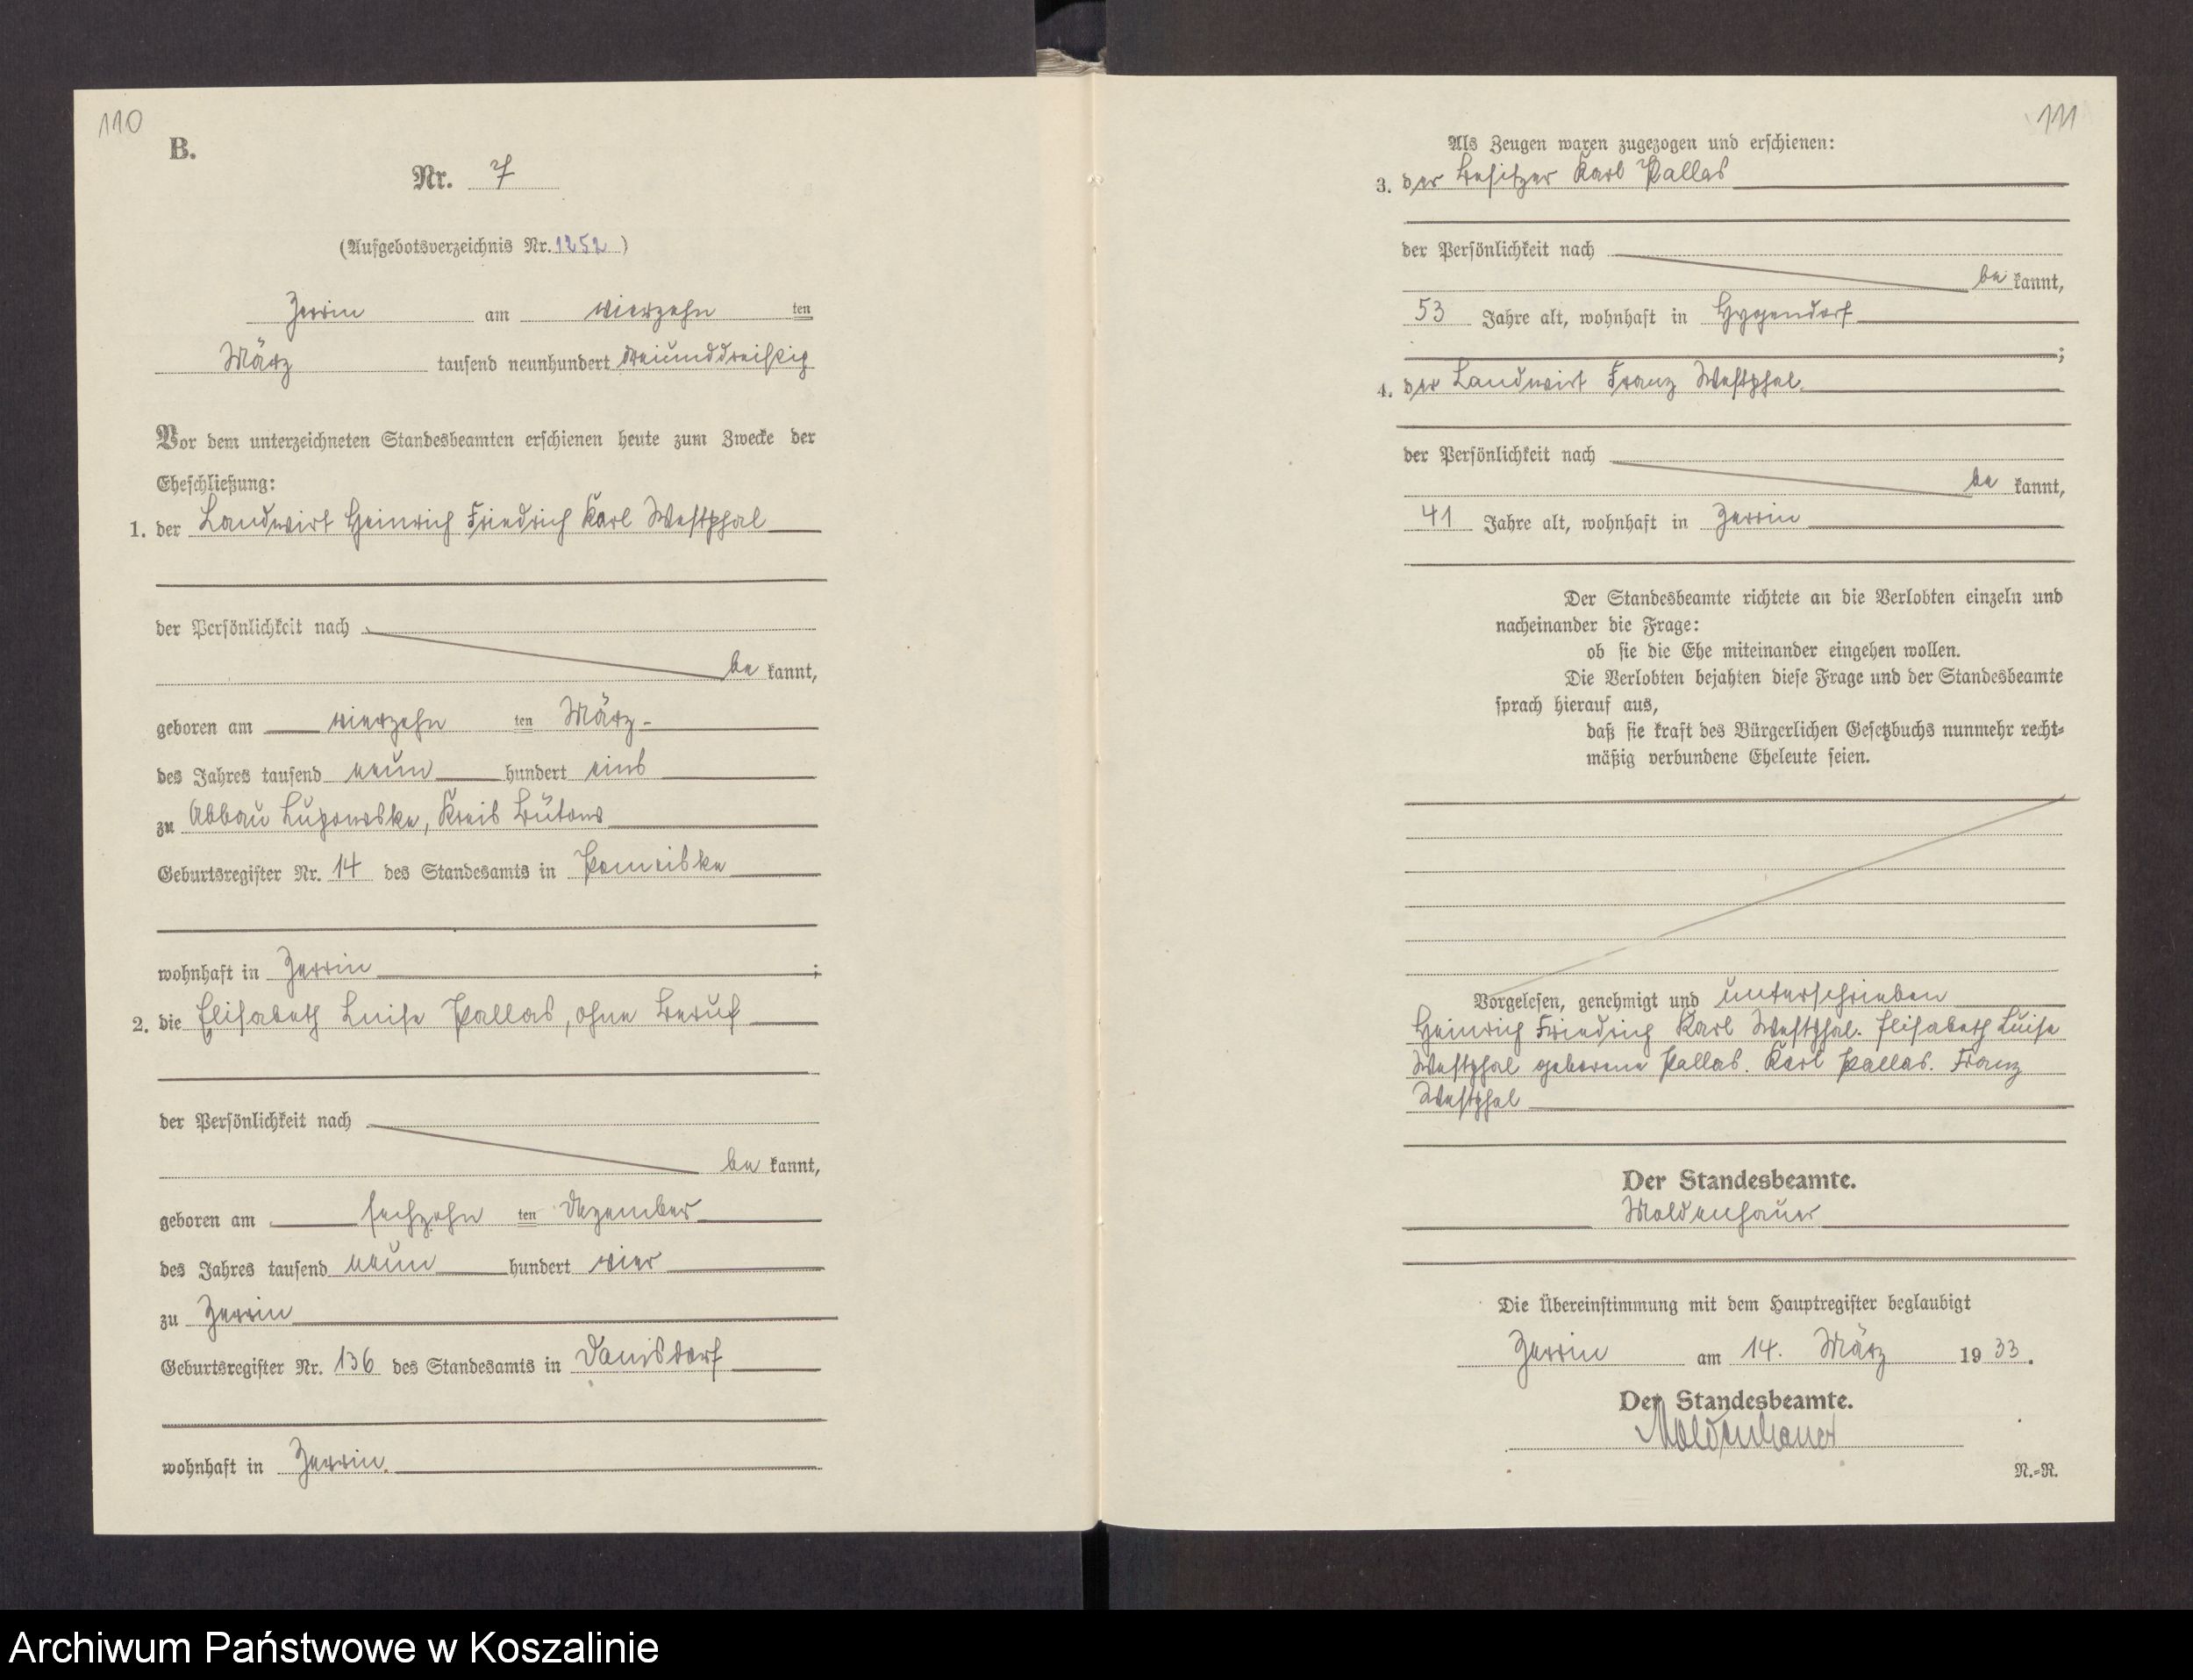 110
B.
Nr. 7
(Aufgebotsverzeichnis Nr. 1252)
Zerrin am vierzehn ten
März tausend neunhundert dreiunddreißig
Vor dem unterzeichneten Standesbeamten erschienen heute zum Zwecke der
Eheschließung:
1. der Landwirt Heinrich Friedrich Karl Westphal
der Persönlichkeit nach
be kannt,
geboren am vierzehn ten März
des Jahres tausend neun hundert eins
zu Abbau Luponske, Kreis Bütow
Geburtsregister Nr. 14 des Standesamts in Pomeiske
wohnhaft in Zerrin;
2. die Elisabeth Luise Pallas, ohne Beruf
der Persönlichkeit nach
be kannt,
geboren am sechzehn ten Dezember
des Jahres tausend neun hundert vier
zu Zerrin
Geburtsregister Nr. 136 des Standesamts in
wohnhaft in Zerrin.
111
Als Zeugen waren zugezogen und erschienen:
3. der Besitzer Karl Pallas
der Persönlichkeit nach
be kannt,
53 Jahre alt, wohnhaft in Hygendorf
;
4. der Landwirt Franz Westphal.
der Persönlichkeit nach
be kannt,
41 Jahre alt, wohnhaft in Zerrin
Der Standesbeamte richtete an die Verlobten einzeln und
nacheinander die Frage:
ob sie die Ehe miteinander eingehen wollen.
Die Verlobten bejahten diese Frage und der Standesbeamte
sprach hierauf aus,
daß sie kraft des Bürgerlichen Gesetzbuchs nunmehr recht-
mäßig verbundene Eheleute seien.
Vorgelesen, genehmigt und unterschrieben
Heinrich Friedrich Karl Westphal. Elisabeth Luise
Westphal geborene Pallas. Karl Pallas. Franz
Westphal
Der Standesbeamte.
Moldenhauer
Die Übereinstimmung mit dem Hauptregister beglaubigt
Zerrin am 14. März 19 33.
Der Standesbeamte.
Moldenhauer
N.-R.
Archiwum Państwowe w Koszalinie